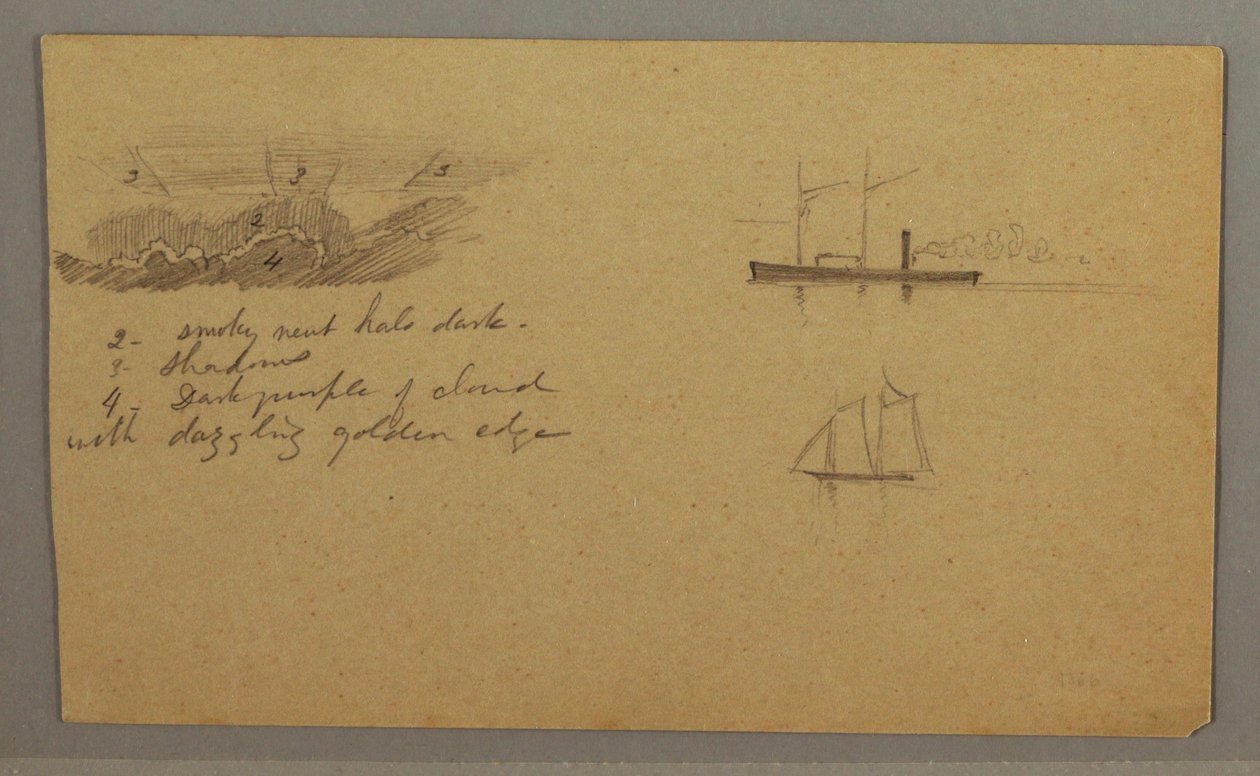 3 3 3
2
4
2- smoky neut halo dark -
3- shadows
4- Dark purple of cloud
with dazzling golden edge